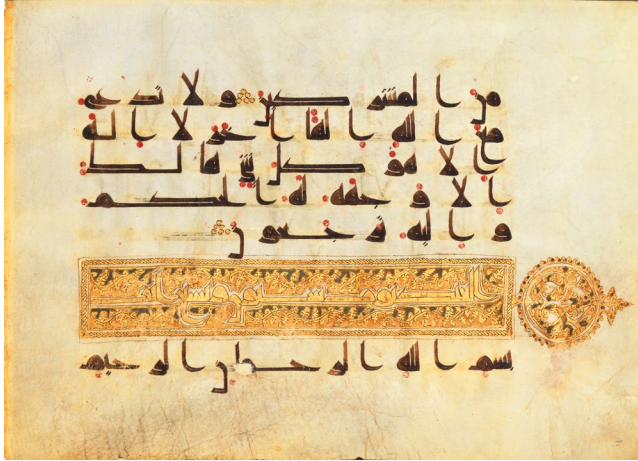 من المشركين ولا تدع
مع الله الها اخر لا اله
الا هو كل شى هالك
الا وجهه له الحكم
واليه ترجعون
العنكبوت ستون وتسع ايات
بسم الله الرحمن الرحيم